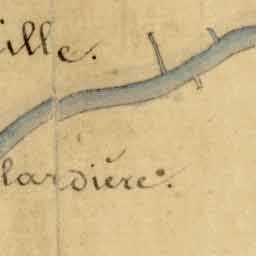 ille.
lardière.